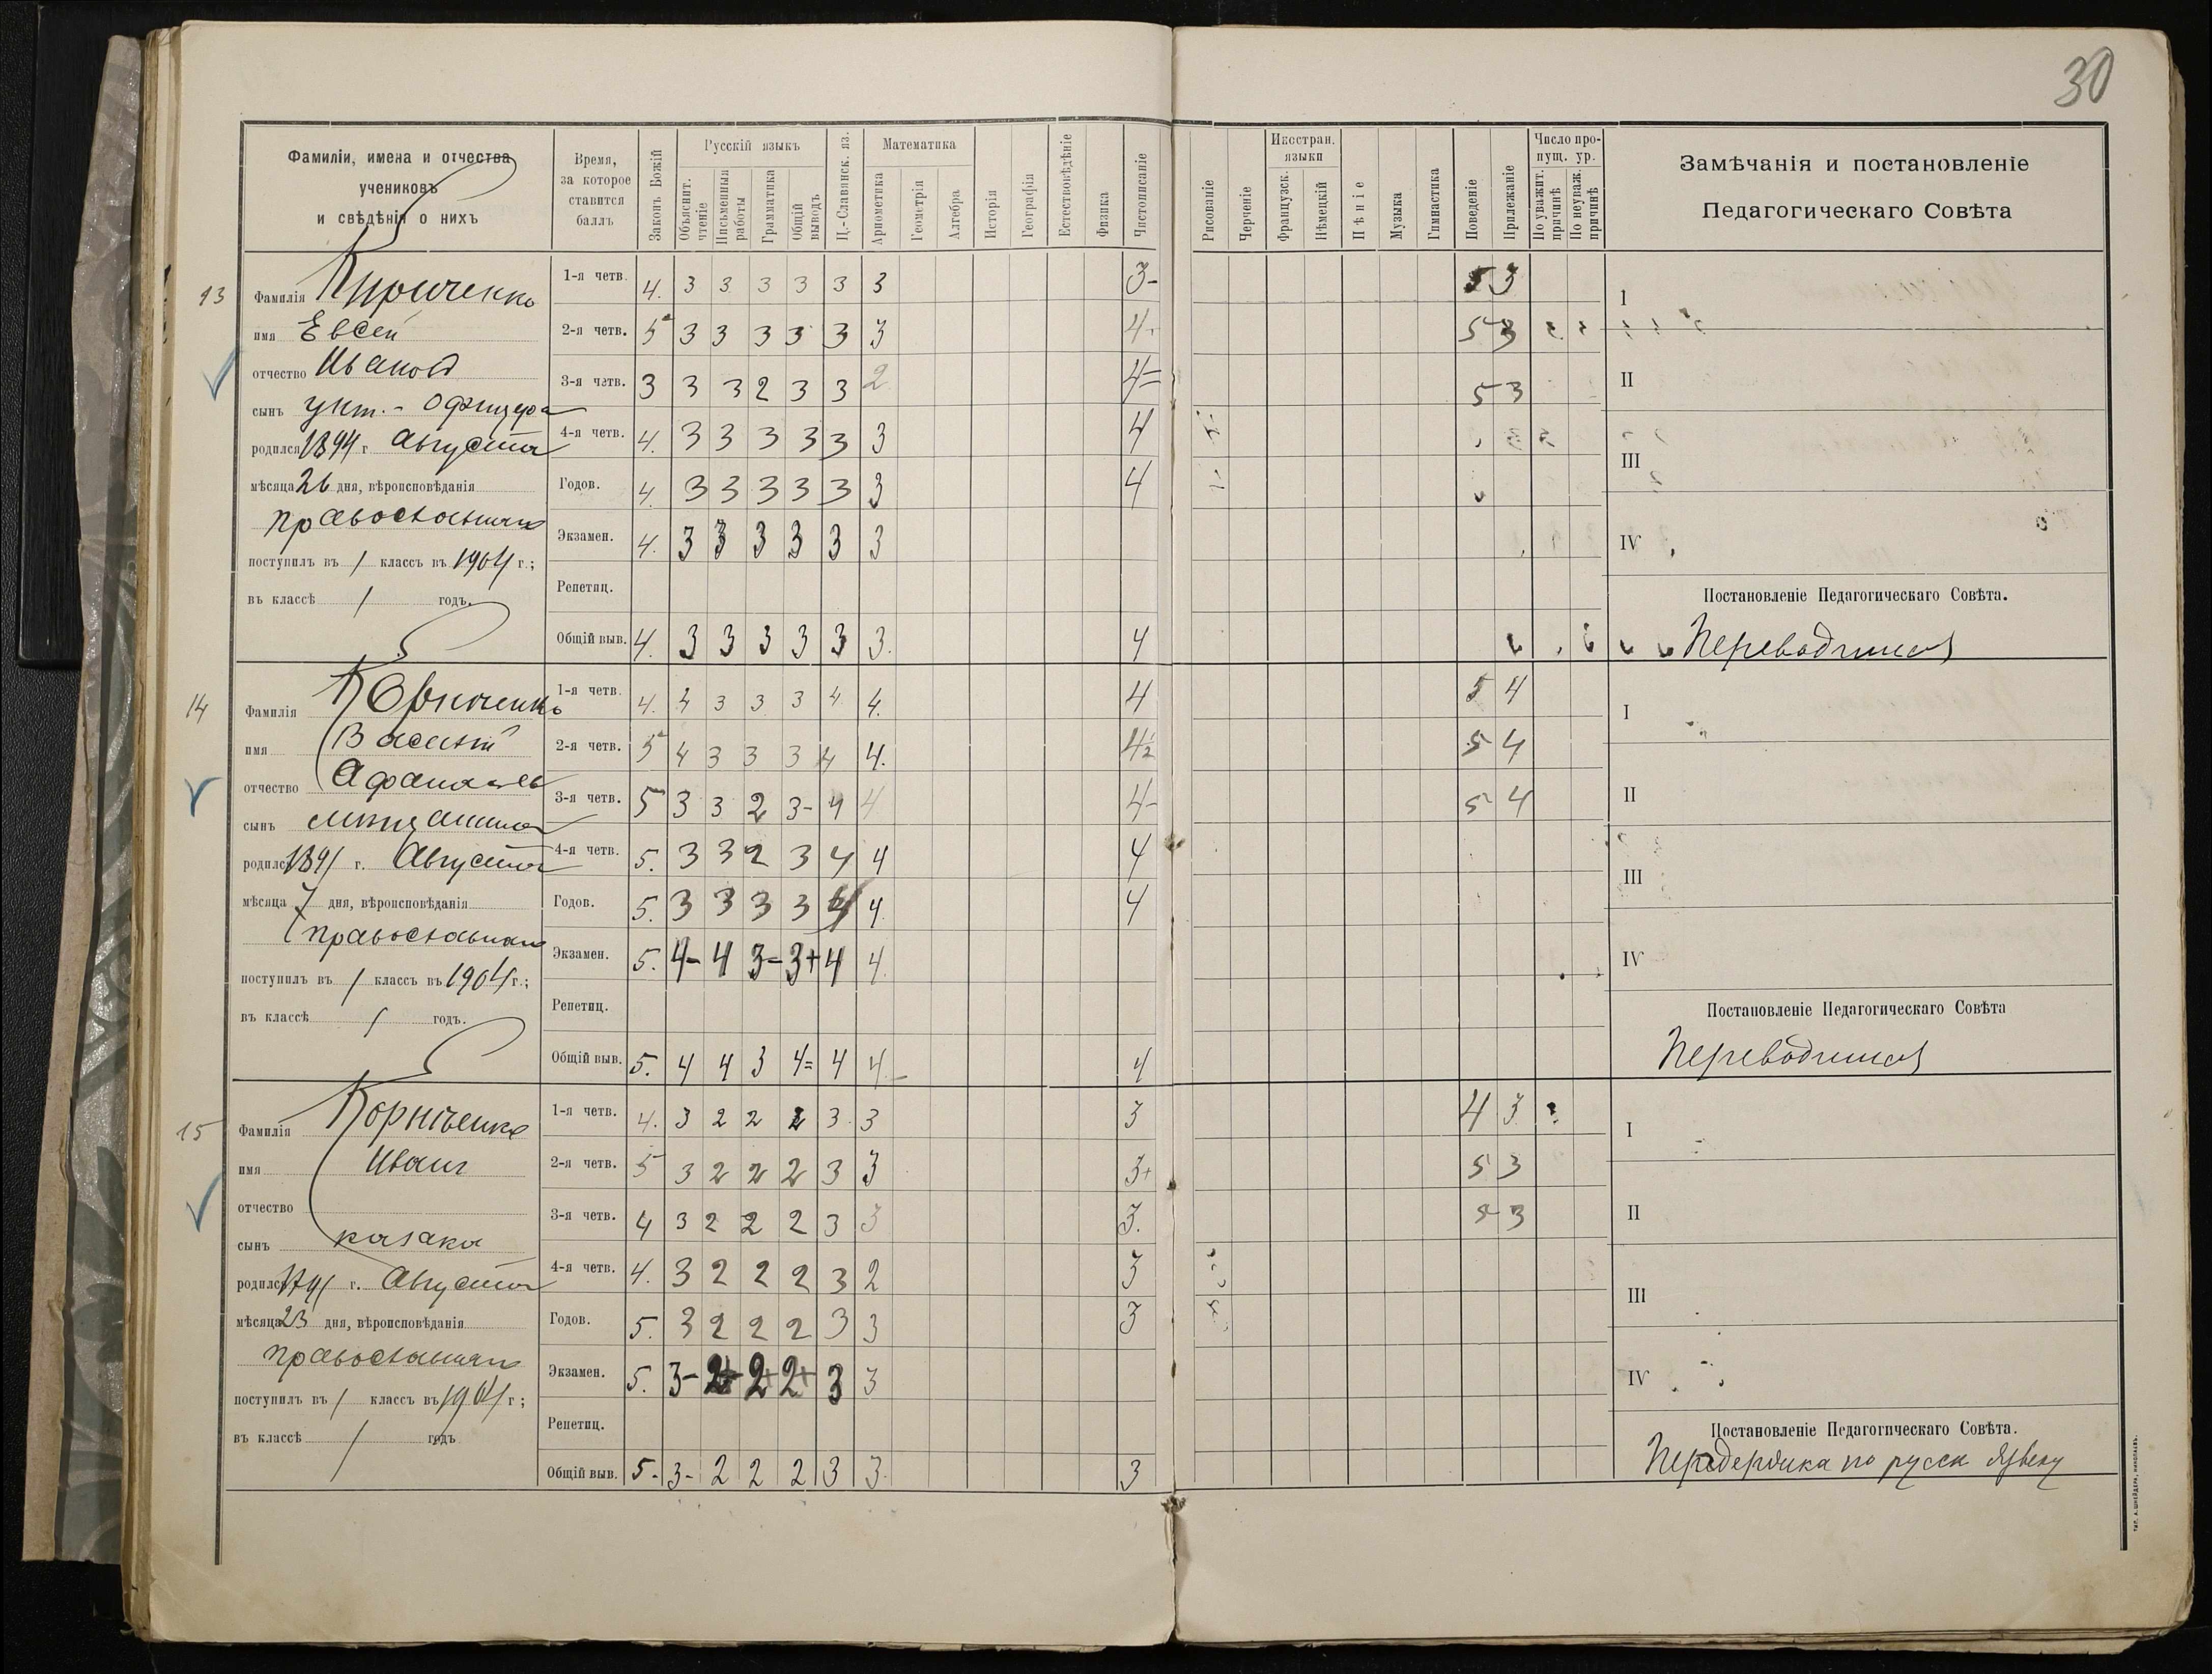 30
Фамиліи, имена и отчества
учениковъ
и свѣдѣнія о нихъ
Время,
за которое
ставится
баллъ
Законъ Божій
Русскій языкъ
Объяснит.
чтеніе
Письменныя
работы
Грамматика
Общій
выводъ
Ц.-Славянск. яз.
Математика
Ариѳметика
Геометрія
Алгебра
Исторія
Географія
Естествовѣдѣніе
Физика
Чистописаніе
Рисованіе
Черченіе
Иностран.
языки
Французск.
Нѣмецкій
Пѣніе
Музыка
Гимнастика
Поведеніе
Прилежаніе
Число про-
пущ. ур.
По уважит.
причинѣ
По неуваж.
причинѣ
Замѣчанія и постановленіе
Педагогическаго Совѣта
13
Фамилія Кириченко
имя Евсей
отчество Иванов
сынъ унт.-офицера
родился 1894 г. Августа
мѣсяца 26 дня, вѣроисповѣданія
православнаго
поступилъ въ 1 классъ въ 1904 г.;
въ классѣ 1 годъ.
1-я четв. 4. 3 3 3 3 3 3 3- 5 3
2-я четв. 5 3 3 3 3 3 3 4- 5 3
3-я четв. 3 3 3 2 3 3 2 4= 5 3
4-я четв. 4. 3 3 3 3 3 3 4
Годов. 4. 3 3 3 3 3 3 4
Экзамен. 4. 3 3 3 3 3 3
Репетиц.
Общій выв. 4. 3 3 3 3 3 3. 4
I
II
III
IV
Постановленіе Педагогическаго Совѣта.
Переводится
14
Фамилія Корниченко
имя Василій
отчество Афанасьев
сынъ мѣщанина
родился 1891 г. Августа
мѣсяца 7 дня, вѣроисповѣданія
православнаго
поступилъ въ 1 классъ въ 1904 г.;
въ классѣ 1 годъ.
1-я четв. 4. 4 3 3 3 4 4. 4 5 4
2-я четв. 5 4 3 3 3 4 4. 4½ 5 4
3-я четв. 5 3 3 2 3- 4 4 4- 5 4
4-я четв. 5. 3 3 2 3 4 4 4
Годов. 5. 3 3 3 3 4 4. 4
Экзамен. 5. 4- 4 3= 3+ 4 4.
Репетиц.
Общій выв. 5. 4 4 3 4= 4 4. 4
I
II
III
IV
Постановленіе Педагогическаго Совѣта
Переводится
15
Фамилія Корніенко
имя Иванъ
отчество
сынъ казака
родился г. Августа
мѣсяца 23 дня, вѣроисповѣданія
православнаго
поступилъ въ 1 классъ въ 1904 г;
въ классѣ 1 годъ
1-я четв. 4. 3 2 2 2 3 3 3 4 3
2-я четв. 5 3 2 2 2 3 3 3+ 5 3
3-я четв. 4 3 2 2 2 3 3 3. 5 3
4-я четв. 4. 3 2 2 2 3 2 3
Годов. 5. 3 2 2 2 3 3 3
Экзамен. 5. 3- 2+ 2+ 2+ 3 3
Репетиц.
Общій выв. 5- 3- 2 2 2 3 3. 3
I
II
III
IV
Постановленіе Педагогическаго Совѣта.
Передержка по русск языку
ТИП. А. ШНЕЙДЕРА, НИКОЛАЕВЪ.